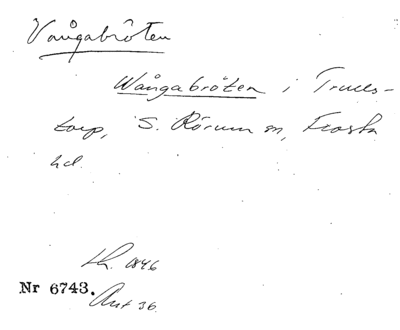 Vångabröten
Wångabröten i Trulls-
torp, S. Rörum sn, Frosta
hd.
Lh. 1846
Nr 6743.
Ant 36